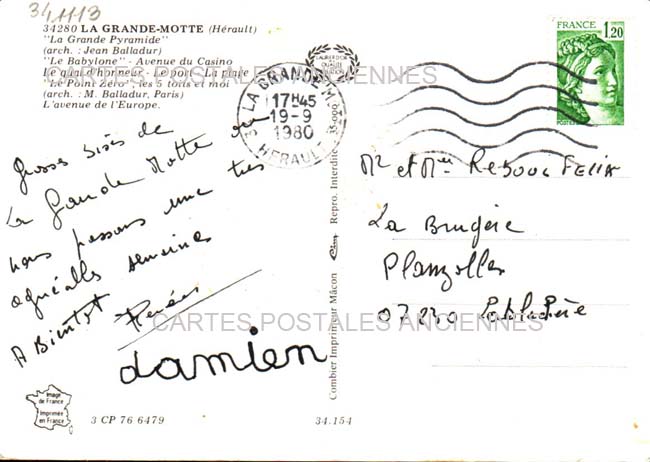 341113
34280 LA GRANDE-MOTTE (Hérault)
"La Grande Pyramide"
(arch. : Jean Balladur)
"Le Babylone" - Avenue du Casino
Le quai d'honneur - Le port - La plage
"Le Point Zéro" les 5 toits et moi
(arch. : M. Balladur, Paris)
L'avenue de l'Europe.
CARTES POSTALES ANCIENNES
LA GRANDE M
17H45
19-9
1980
HERAULT
FRANCE
1,20
Grosses bises de
La Grande Motte ou
nous passons une très
agréable semaines
A Bientôt
damien
Mr et Mme Reboul FELIX
La Brugère
Planzolles
07230
CARTES POSTALES ANCIENNES
Combier Imprimeur Mâcon
Repro. Interdite
Image
de France
Imprimée
en France
3 CP 76 6479
34.154